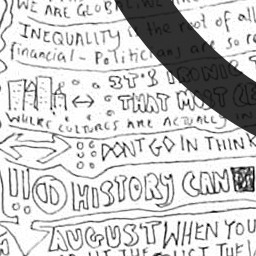 WE ARE GLOBAL
INEQUALITY is the root of all
financial - Politicians are so
IT'S IRONIC
THAT MOST
WHERE CULTURES ARE ACTUALLY IN
DON'T GO IN THINK
HISTORY CAN
AUGUST WHEN YOU